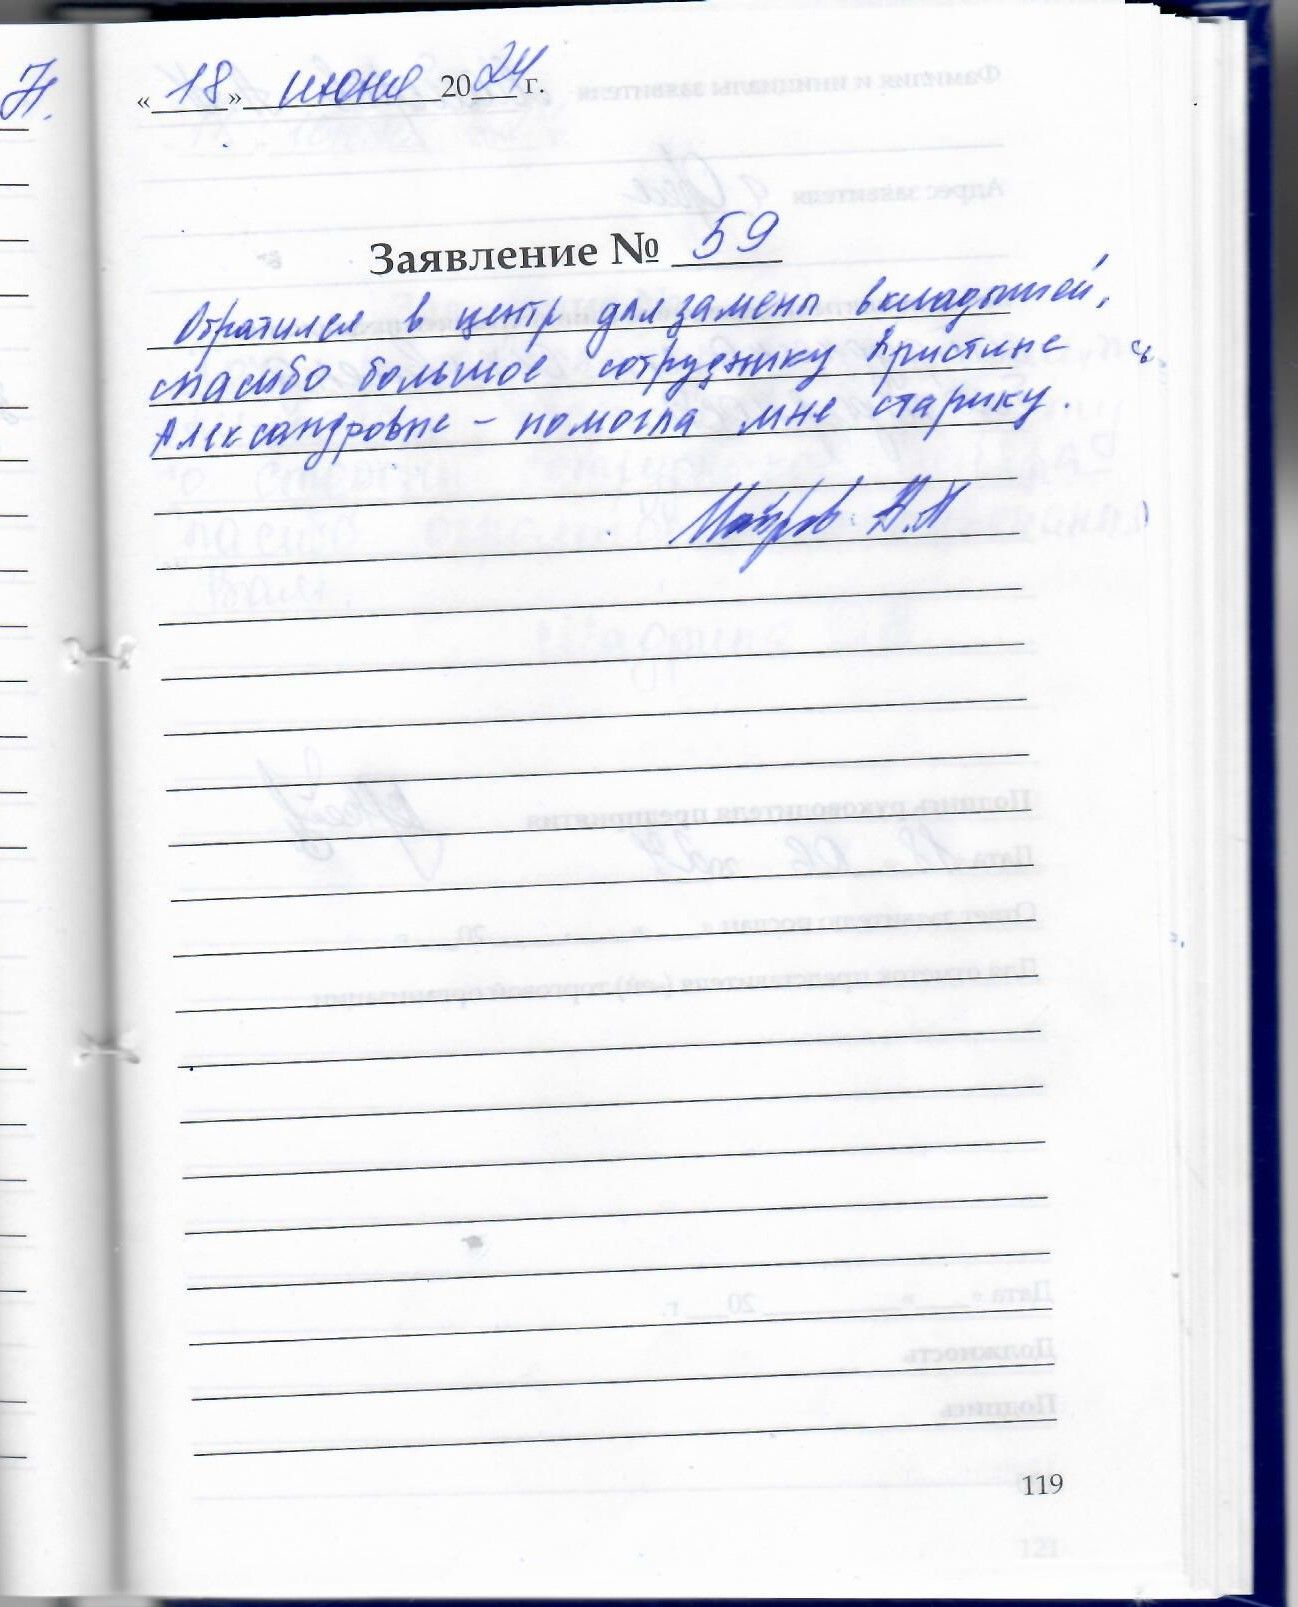 « 18 » июня 2024 г.
Заявление № 59
Обратился в центр для замены вкладышей,
спасибо большое сотруднику Кристине
Александровне – помогла мне старику.
119